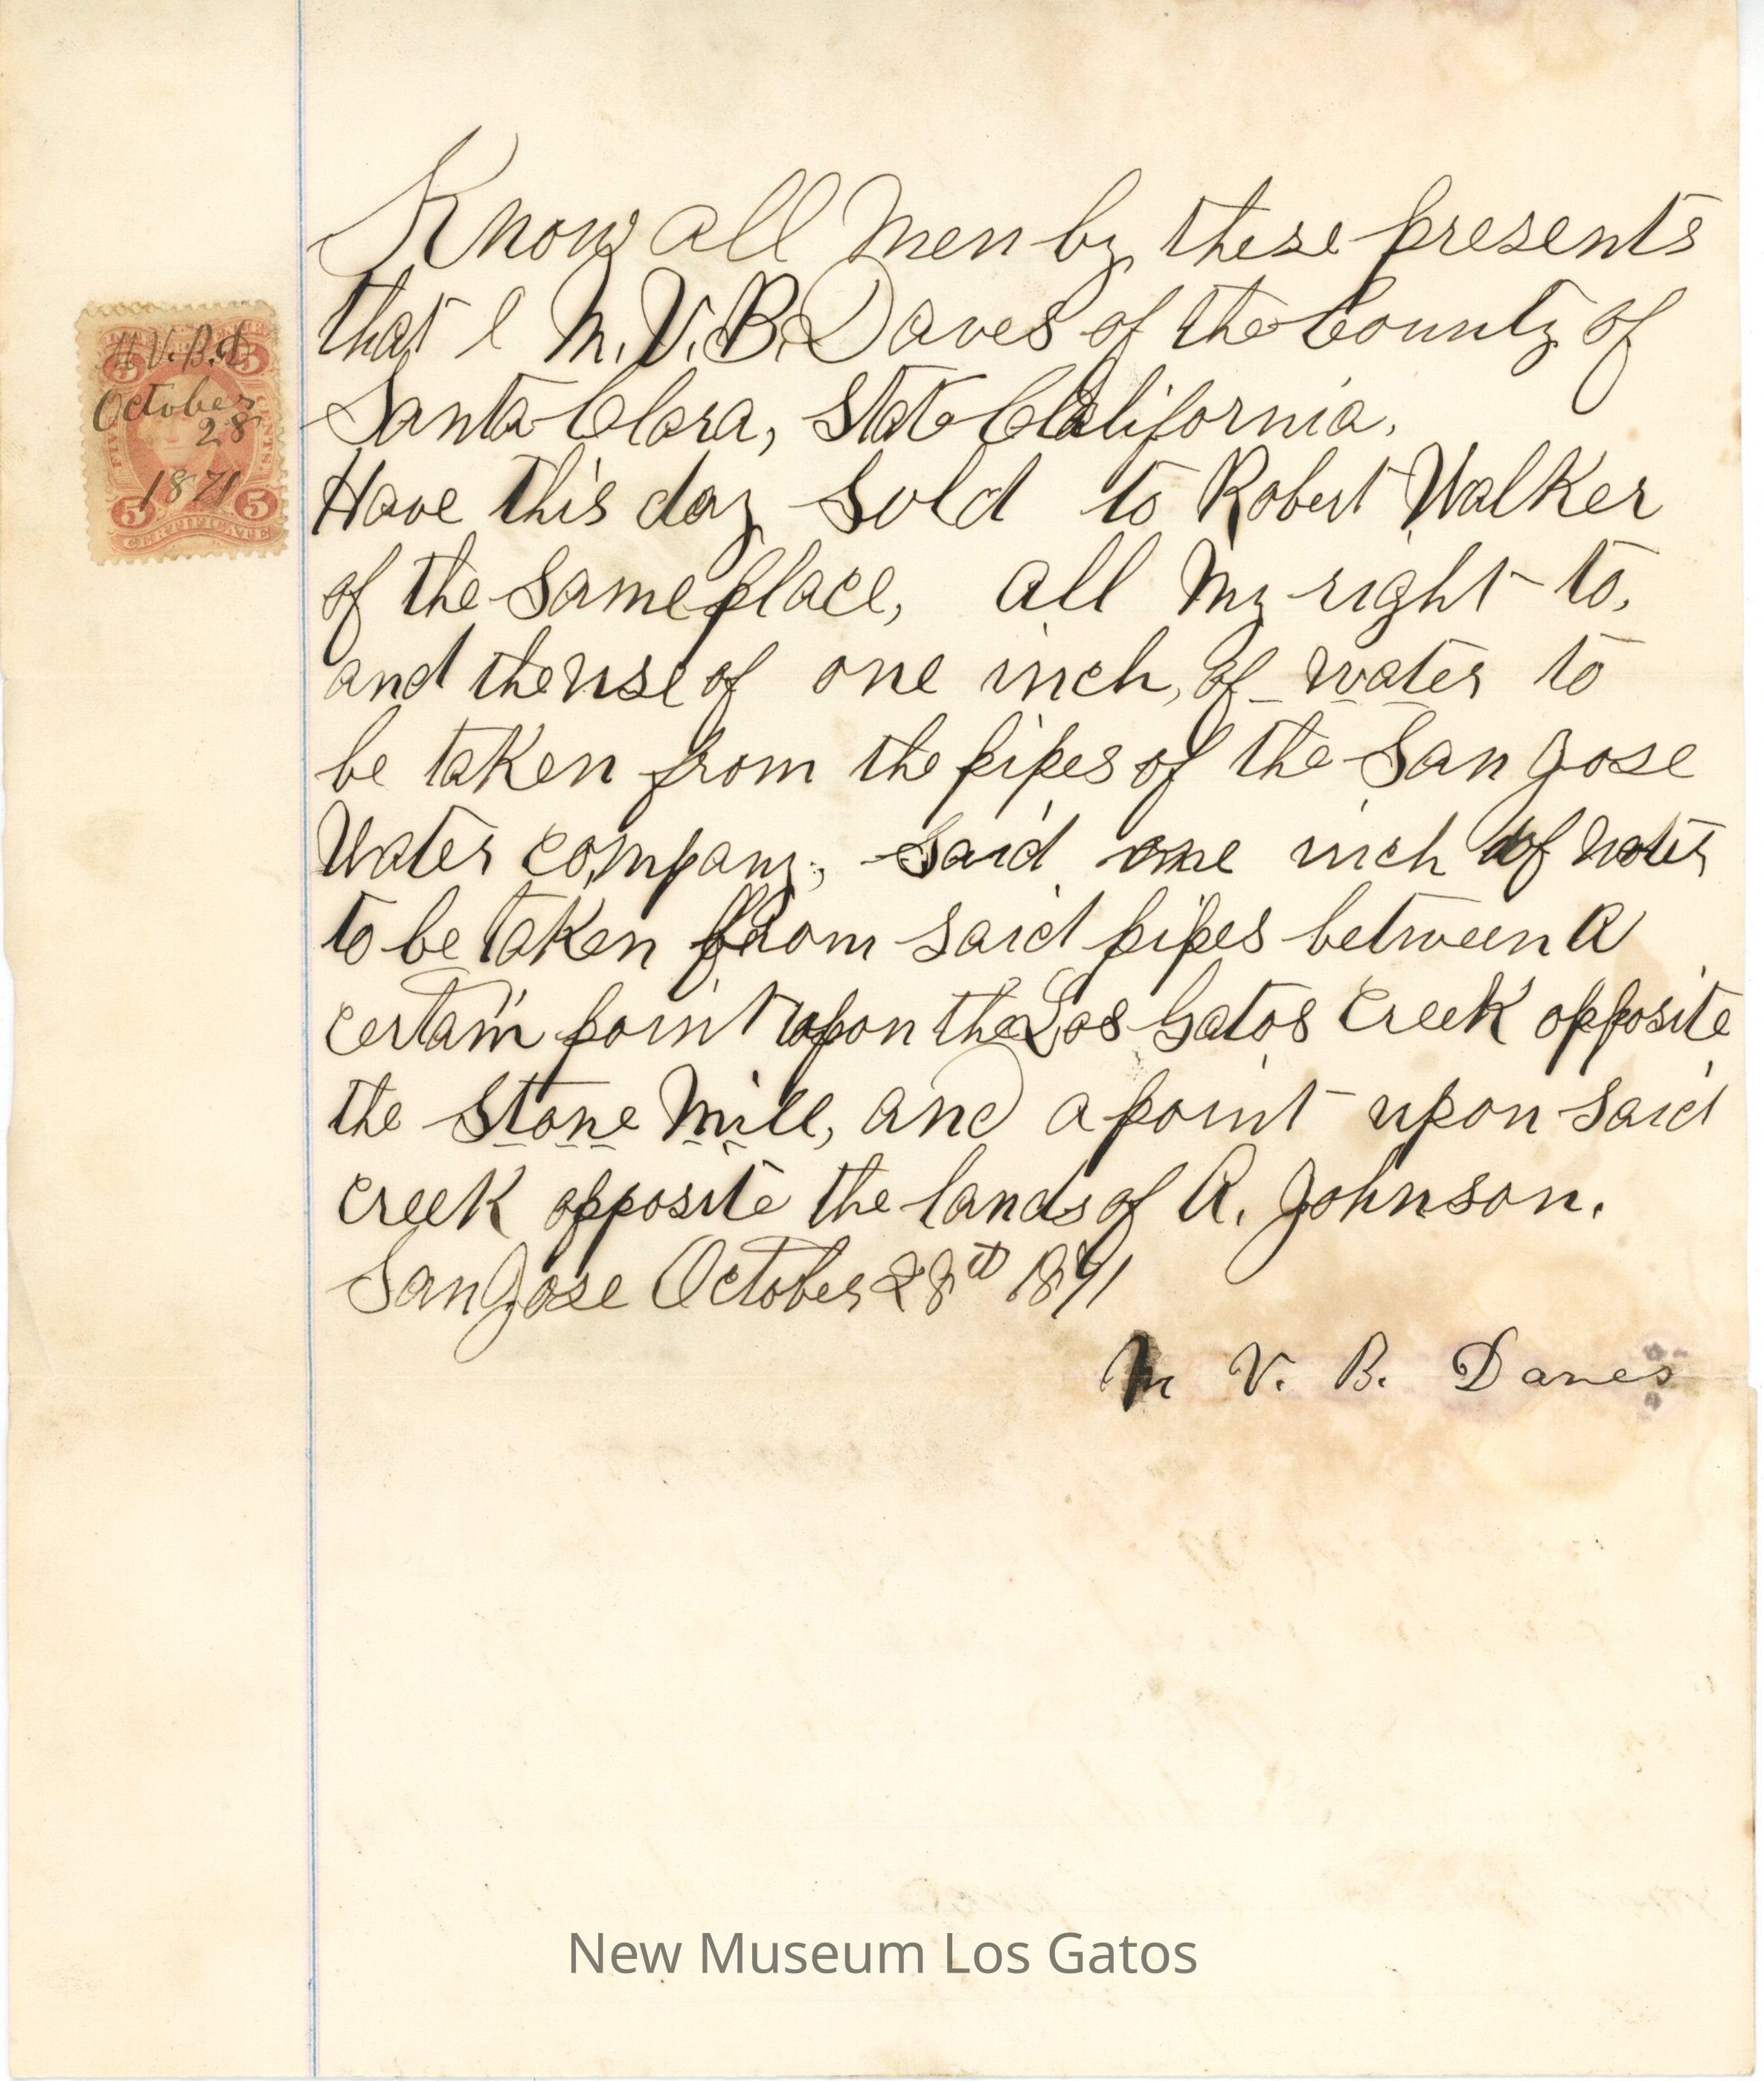 M.V.B.D
October
28
1871
5 5
CERTIFICATE
Know all men by these presents
that I M.V.B. Daves of the County of
Santa Clara, State California.
Have this day sold to Robert Walker
of the same place, all my right to,
and the use of one inch, of water to
be taken from the pipes of the San Jose
Water company; said one inch of water
to be taken from said pipes between a
certain point upon the Los Gatos Creek opposite
the Stone Mill, and a point upon said
creek opposite the lands of A. Johnson.
San Jose October 28th 1871
M V. B. Daves
New Museum Los Gatos